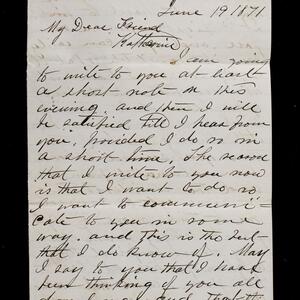 June 19 1871
My Dear Friend
Katharine
I am going
to write to you at least
a short note on this
evening. and then I will
be satisfied till I hear from
you, provided I do so in
a short time. The reason
that I write to you now
is that I want to do so
I want to communi-
cate to you in some
way. and this is the best
that I do know of. May
I say to you that I have
been thinking of you all